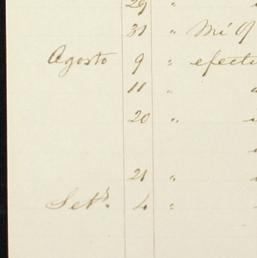 29 "
31 " Mi
Agosto 9 " efectu
11 "
20 "
21 "
Set. 4 "